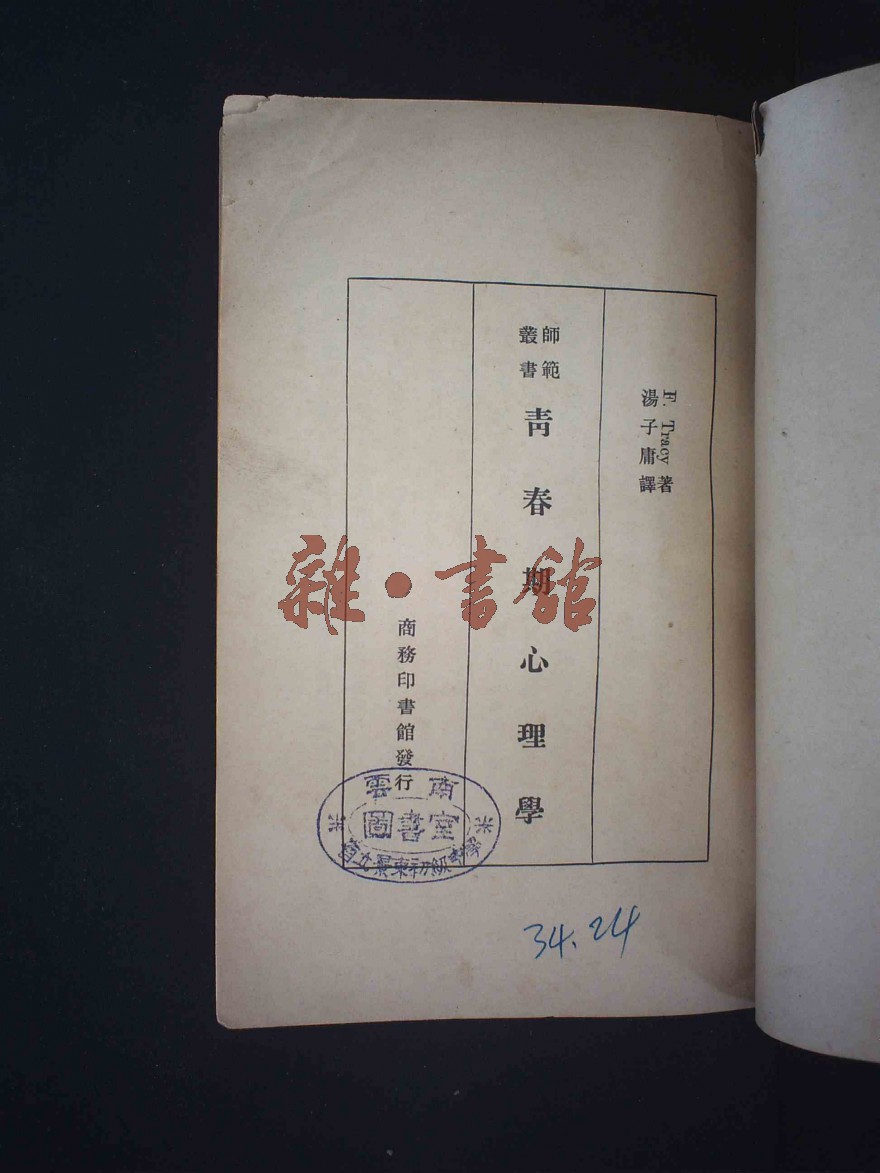 F. Tracy 著
湯子庸譯
師範
叢書
青春期心理學
商務印書館發行
雜·書館
雲南
圖書室
初級中學
34.24